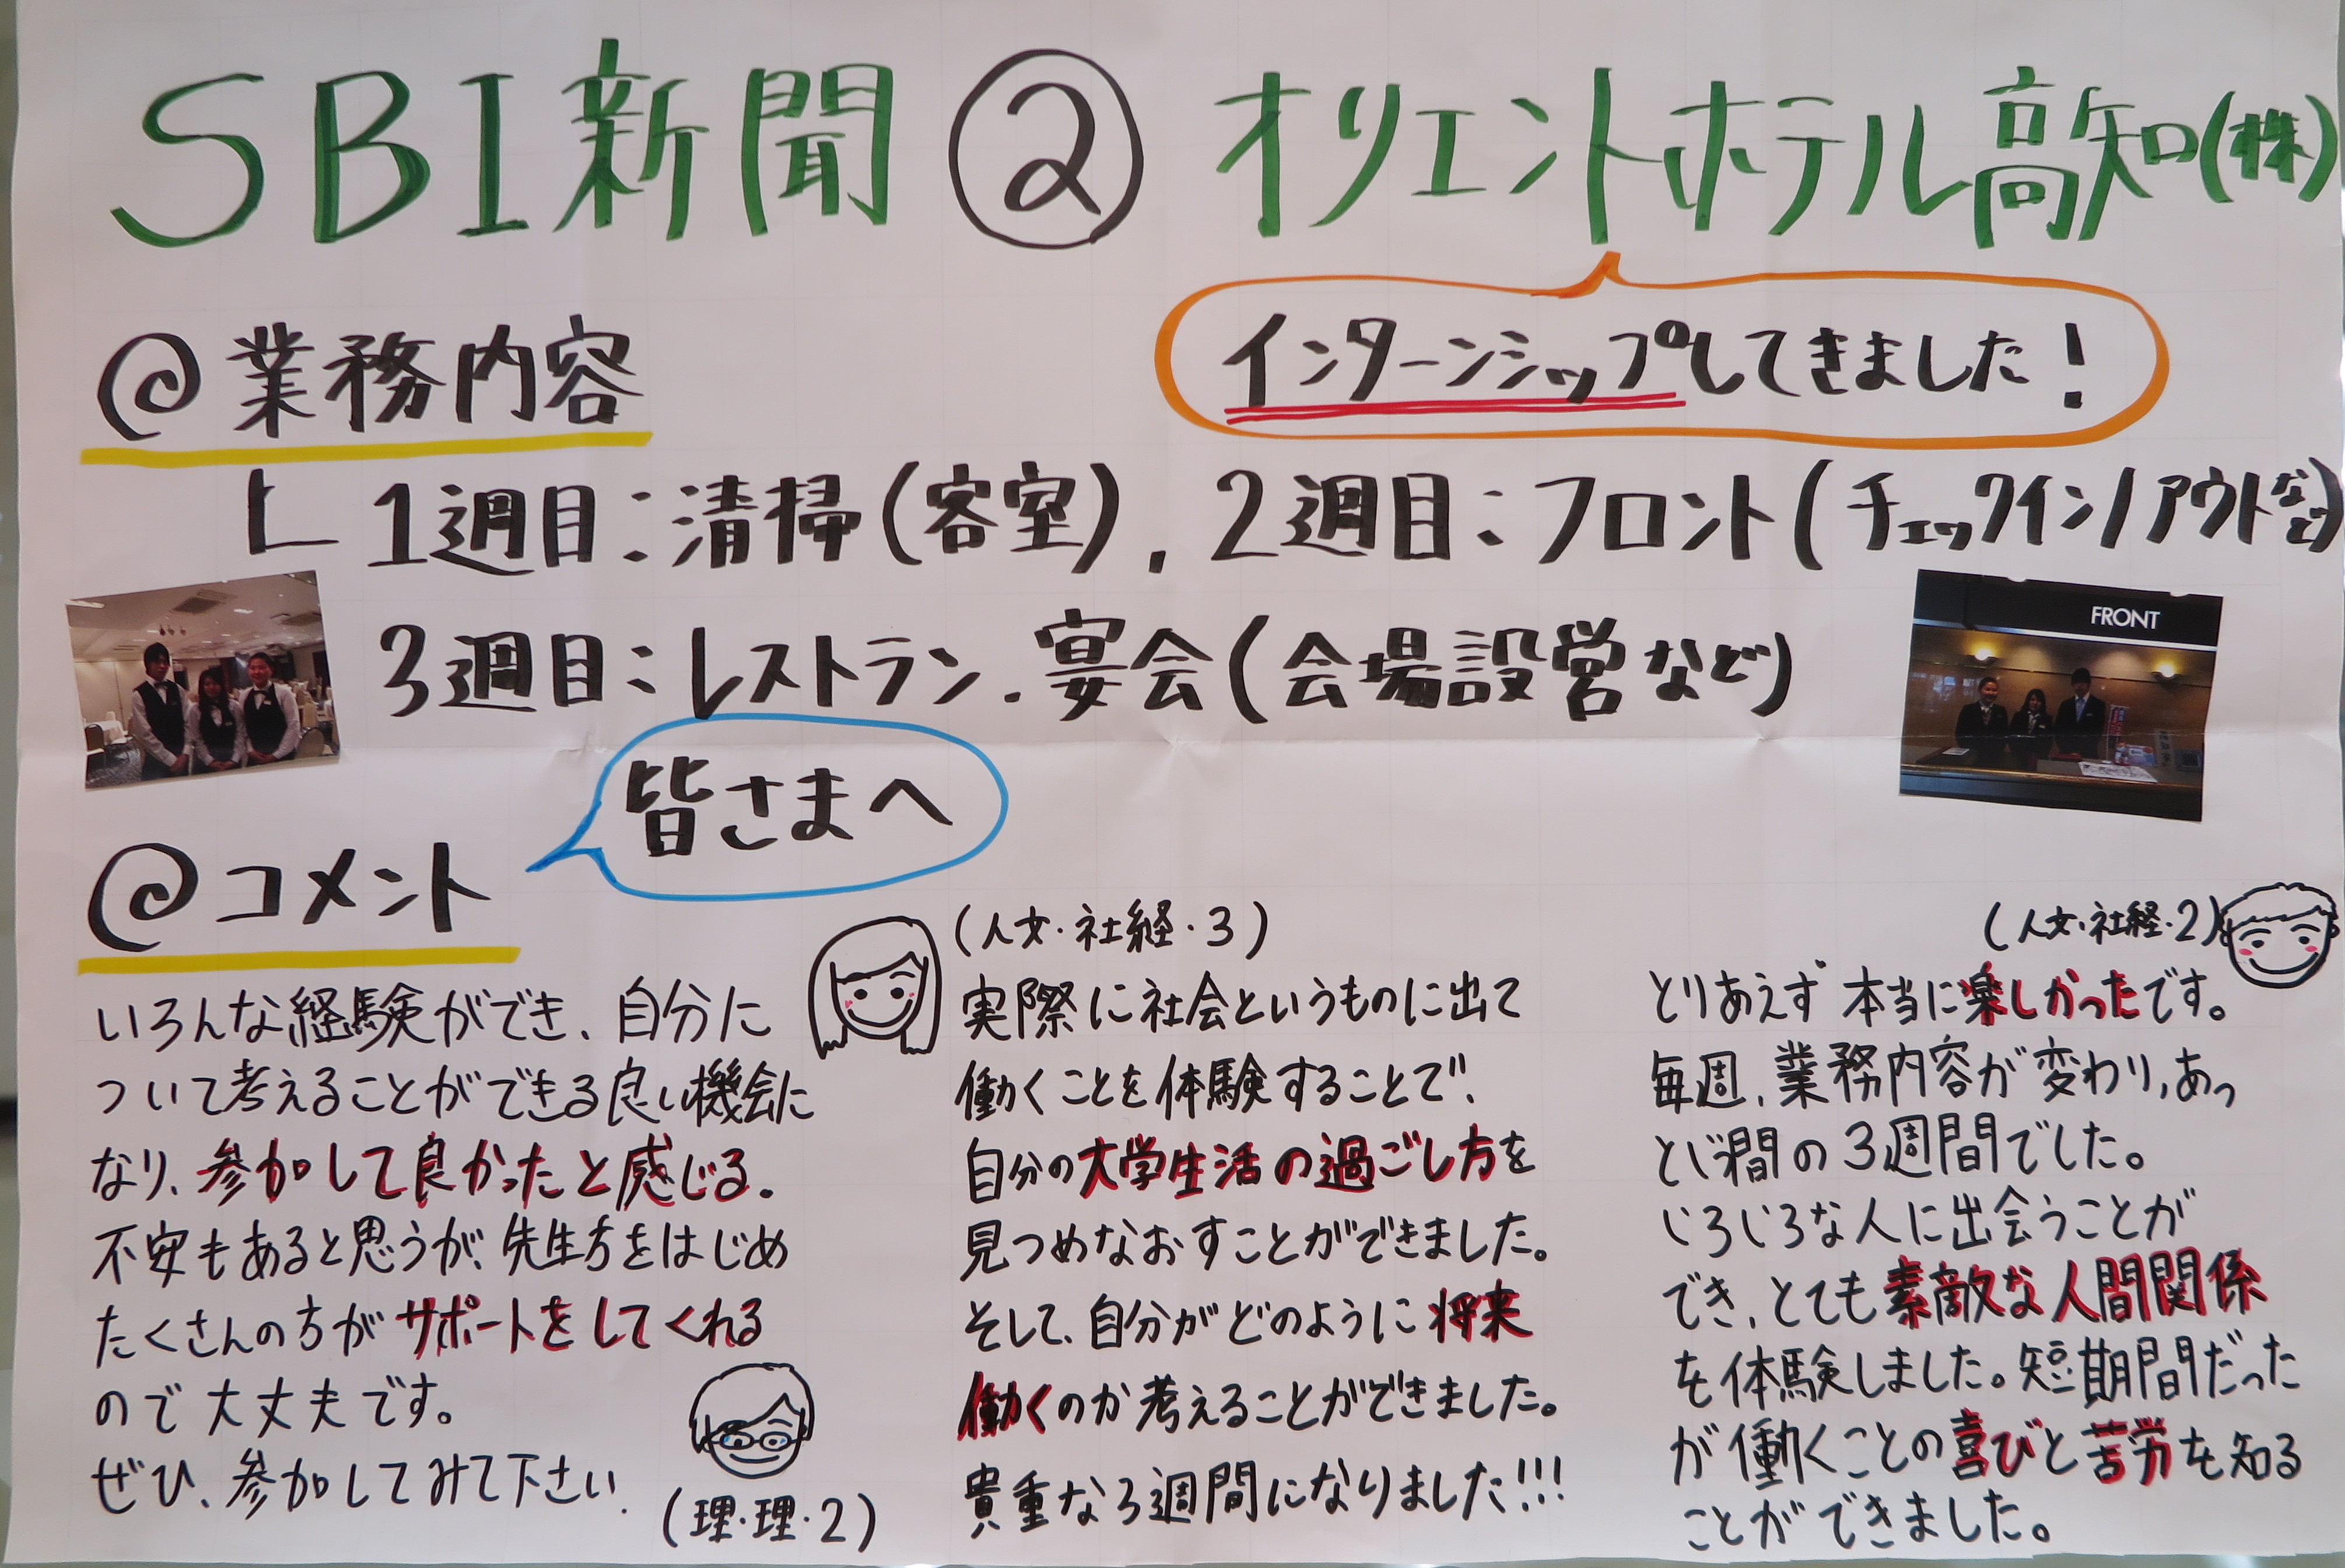 SBI新聞② オリエントホテル高知(株)
インターンシップしてきました!
@業務内容
1週目:清掃(客室).2週目:フロント(チェックイン/アウトなど)
3週目:レストラン.宴会(会場設営など)
FRONT
皆さまへ
@コメント
いろんな経験ができ、自分に
ついて考えることができる良い機会に
なり、参加して良かったと感じる。
不安もあると思うが、先生方をはじめ
たくさんの方がサポートをしてくれる
ので大丈夫です。
ぜひ、参加してみて下さい.
(理・理・2)
(人文・社経・3)
実際に社会というものに出て
働くことを体験することで、
自分の大学生活の過ごし方を
見つめなおすことができました。
そして、自分がどのように将来
働くのか考えることができました。
貴重な3週間になりました!!!
(人文・社経・2)
とりあえず本当に楽しかったです。
毎週、業務内容が変わり、あっ
という間の3週間でした。
いろいろな人に出会うことが
でき、とても素敵な人間関係
を体験しました。短期間だった
が働くことの喜びと苦労を知る
ことができました。